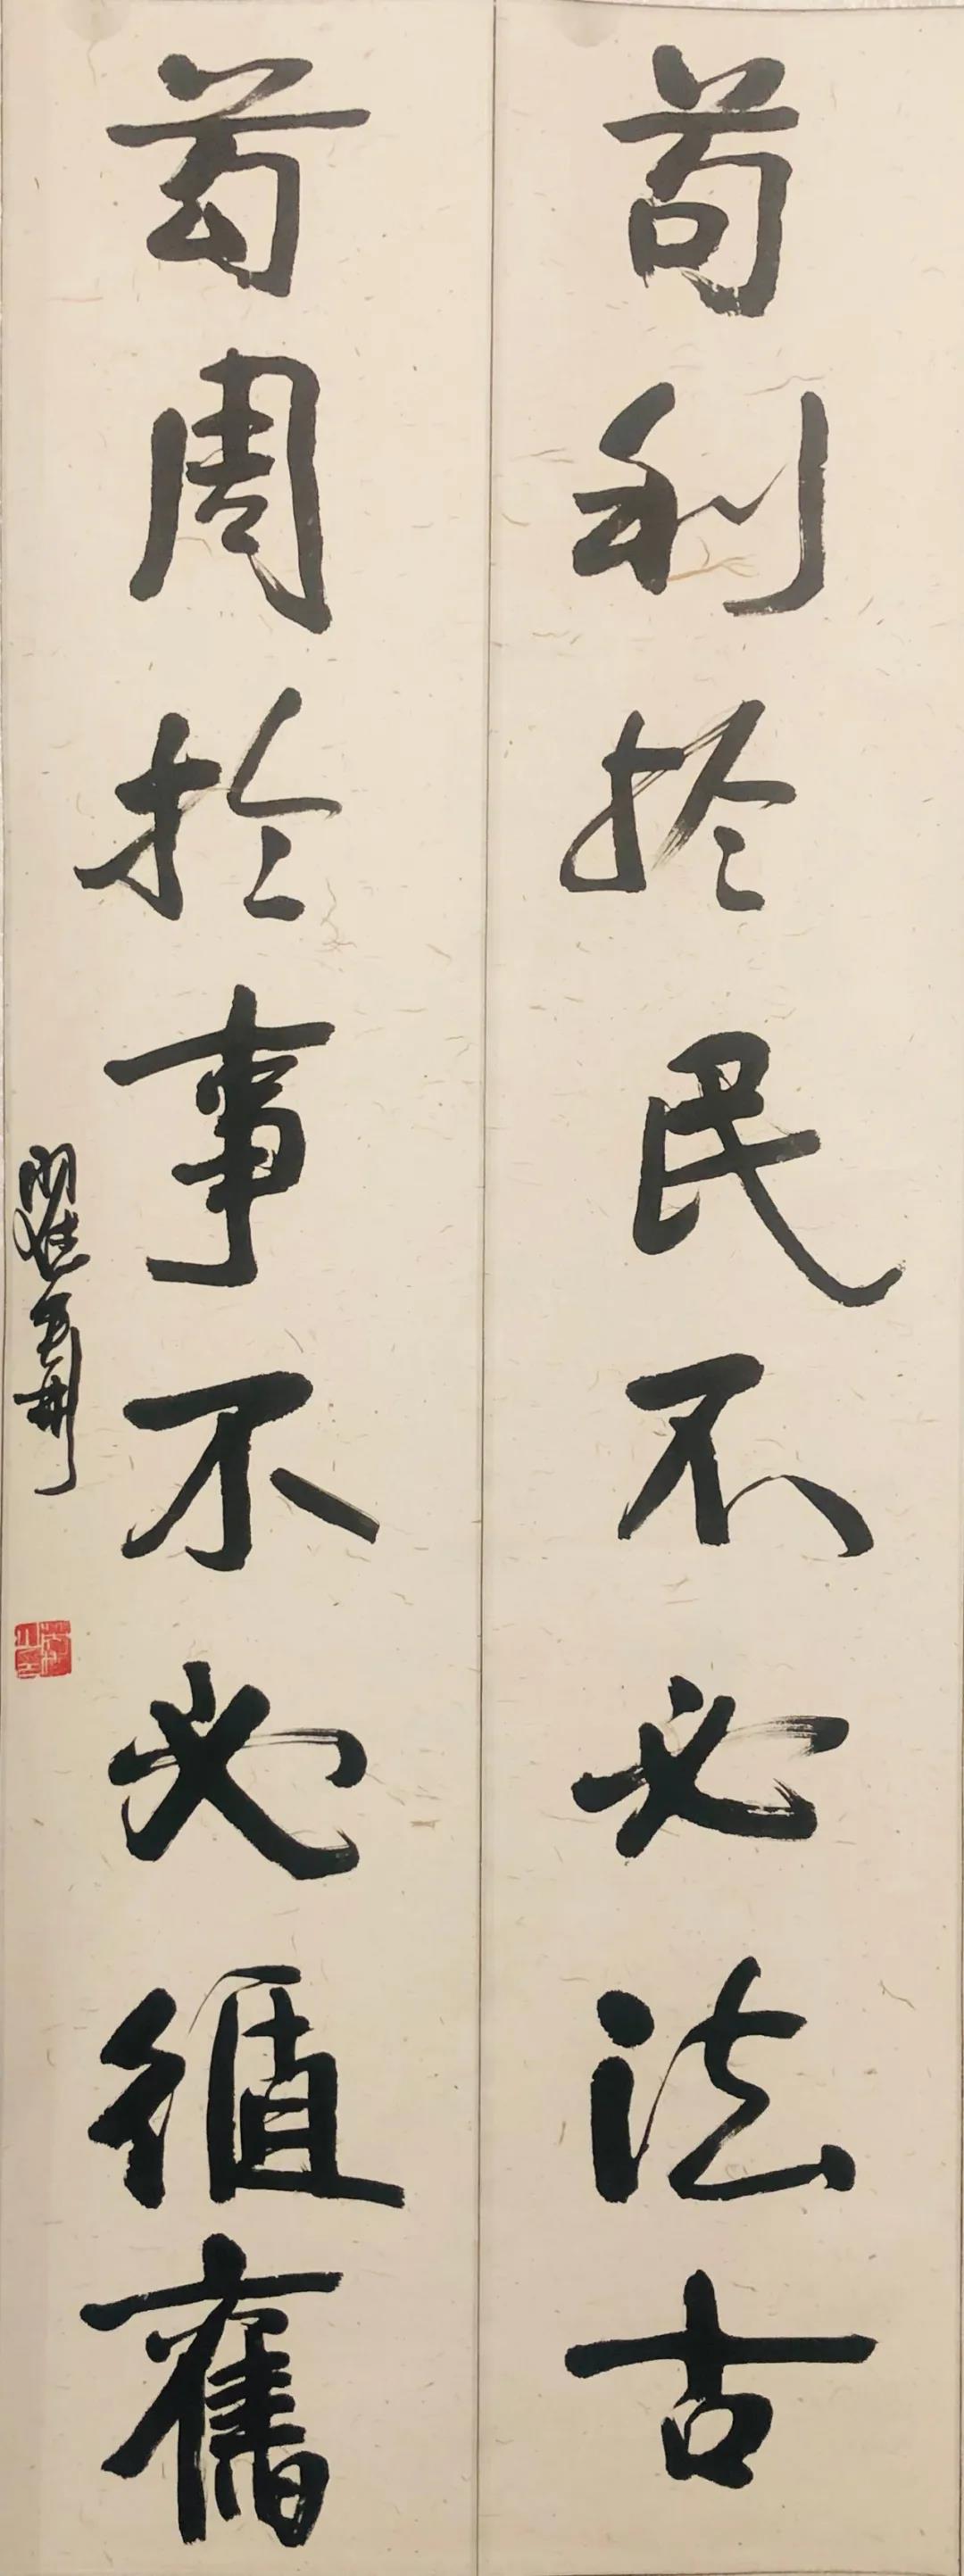 苟利於民不必法古
苟周於事不必循舊